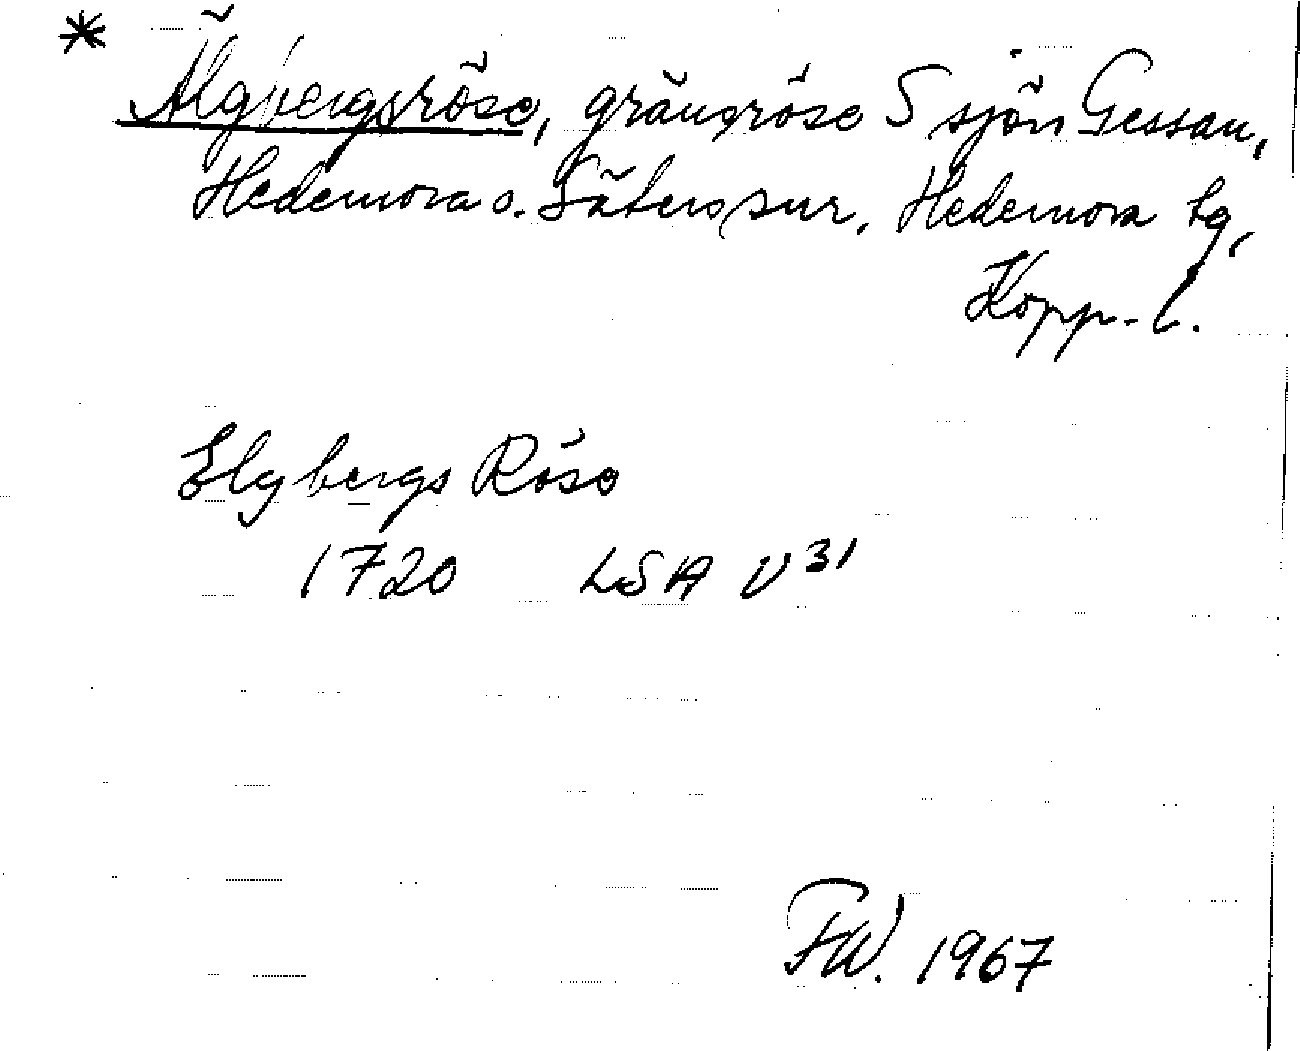 * Älgbergsröse, gränsröse S sjön Gessan,
Hedemora o. Säters snr, Hedemora tg,
Kopp. l.
Elgbergs Röse
1720 LSA V31
FW. 1967